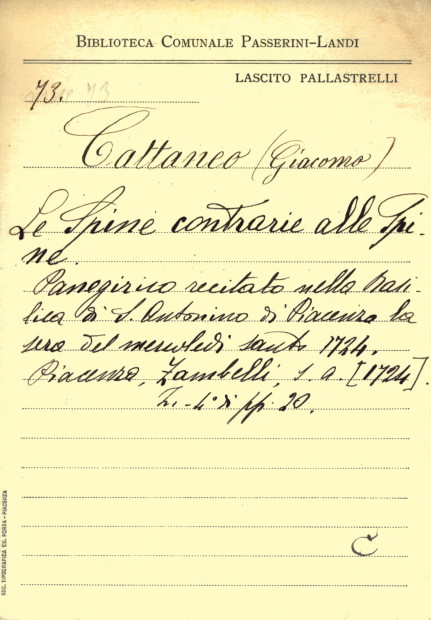 BIBLIOTECA COMUNALE PASSERINI-LANDI
LASCITO PALLASTRELLI
73.
Cattaneo (Giacomo)
Le Spine contrarie alle Spi-
ne.
Panegirico recitato nella Basi-
lica di S. Antonino di Piacenza la
sera del mercoledì santo 1724.
Piacenza, Zambelli, s. a. [1724].
4° di pp. 20.
C
SOC. TIPOGRAFICA ED. PORTA - PIACENZA